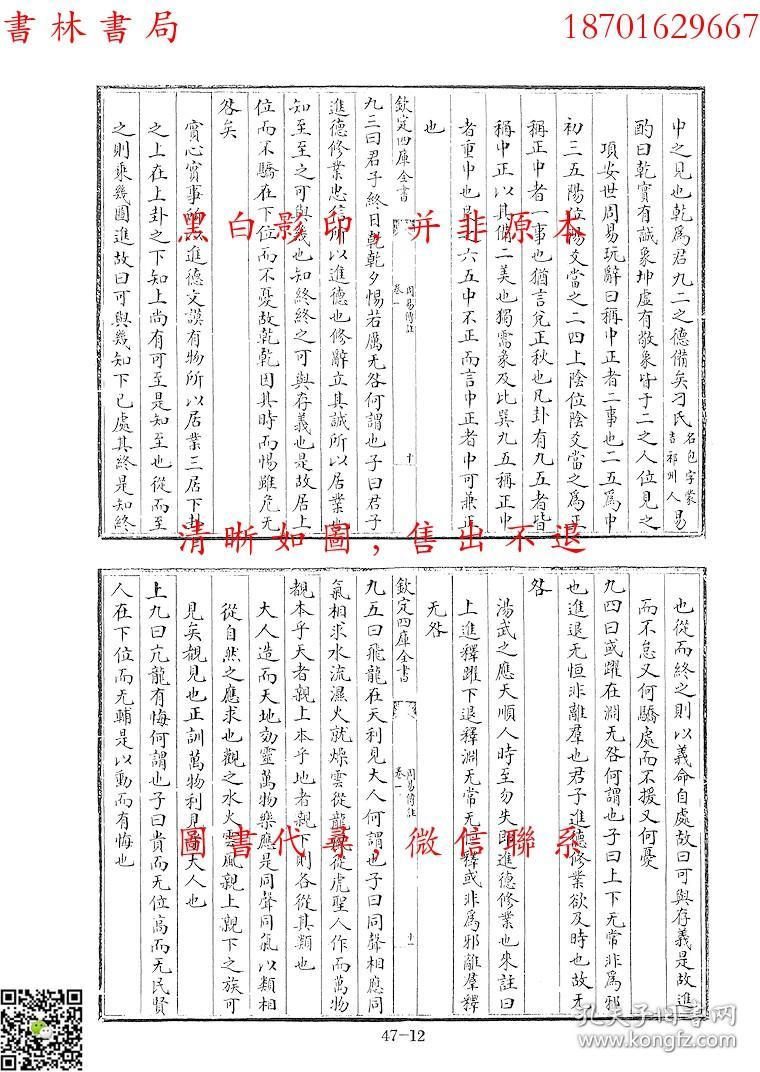 書林書局
18701629667
中之見也乾爲君九二之德備矣刁氏名包字蒙吉祁州人易
酌曰乾實有誠象坤虛有敬象皆于二之人位見之
項安世周易玩辭曰稱中正者二事也二五爲中
初三五陽位陽爻當之二四上陰位陰爻當之爲正
稱正中者一事也猶言兌正秋也凡卦有九五者皆
稱中正以其備二美也獨需象及比巽九五稱正中
者重中也 六五中不正而言中正者中可兼正
也
欽定四庫全書
周易傳註
卷一
十
九三曰君子終日乾乾夕惕若厲无咎何謂也子曰君子
進德修業忠信所以進德也修辭立其誠所以居業也
知至至之可與幾也知終終之可與存義也是故居上
位而不驕在下位而不憂故乾乾因其時而惕雖危无
咎矣
實心實事 進德文誤有物所以居業三居下卦
之上在上卦之下知上尚有可至是知至也從而至
之則乘幾圖進故曰可與幾知下已處其終是知終
黑白影印,并非原本
清晰如圖,售出不退
也從而終之則以義命自處故曰可與存義是故進
而不怠又何驕處而不援又何憂
九四曰或躍在淵无咎何謂也子曰上下无常非爲邪
也進退无恒非離羣也君子進德修業欲及時也故无
咎
湯武之應天順人時至勿失即進德修業也來註曰
上進釋躍下退釋淵无常无 釋或非爲邪離羣釋
无咎
欽定四庫全書
周易傳註
卷一
十一
九五曰飛龍在天利見大人何謂也子曰同聲相應同
氣相求水流濕火就燥雲從龍 從虎聖人作而萬物
覩本乎天者親上本乎地者親下則各從其類也
大人造而天地効靈萬物樂應是同聲同氣以類相
從自然之應求也觀之水火雲風親上親下之族可
見矣覩見也正訓萬物利見 大人也
上九曰亢龍有悔何謂也子曰貴而无位高而无民賢
人在下位而无輔是以動而有悔也
圖書代尋,微信聯系
47-12
孔夫子旧书网
www.kongfz.com